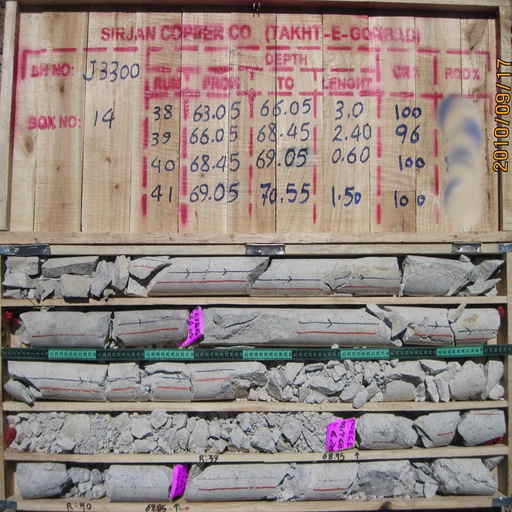 SIRJAN COPPER CO. (TAKHT-E-GORBAD)
DEPTH
BH NO: J3300 RUN FROM TO LENGHT CR % RQD%
38 63.05 66.05 3.0 100
BOX NO: 14
39 66.05 68.45 2.40 96
40 68.45 69.05 0.60 100
41 69.05 70.55 1.50 100
2010/09/17
R:39 68.45 ↑
R:40 69.05 ↑